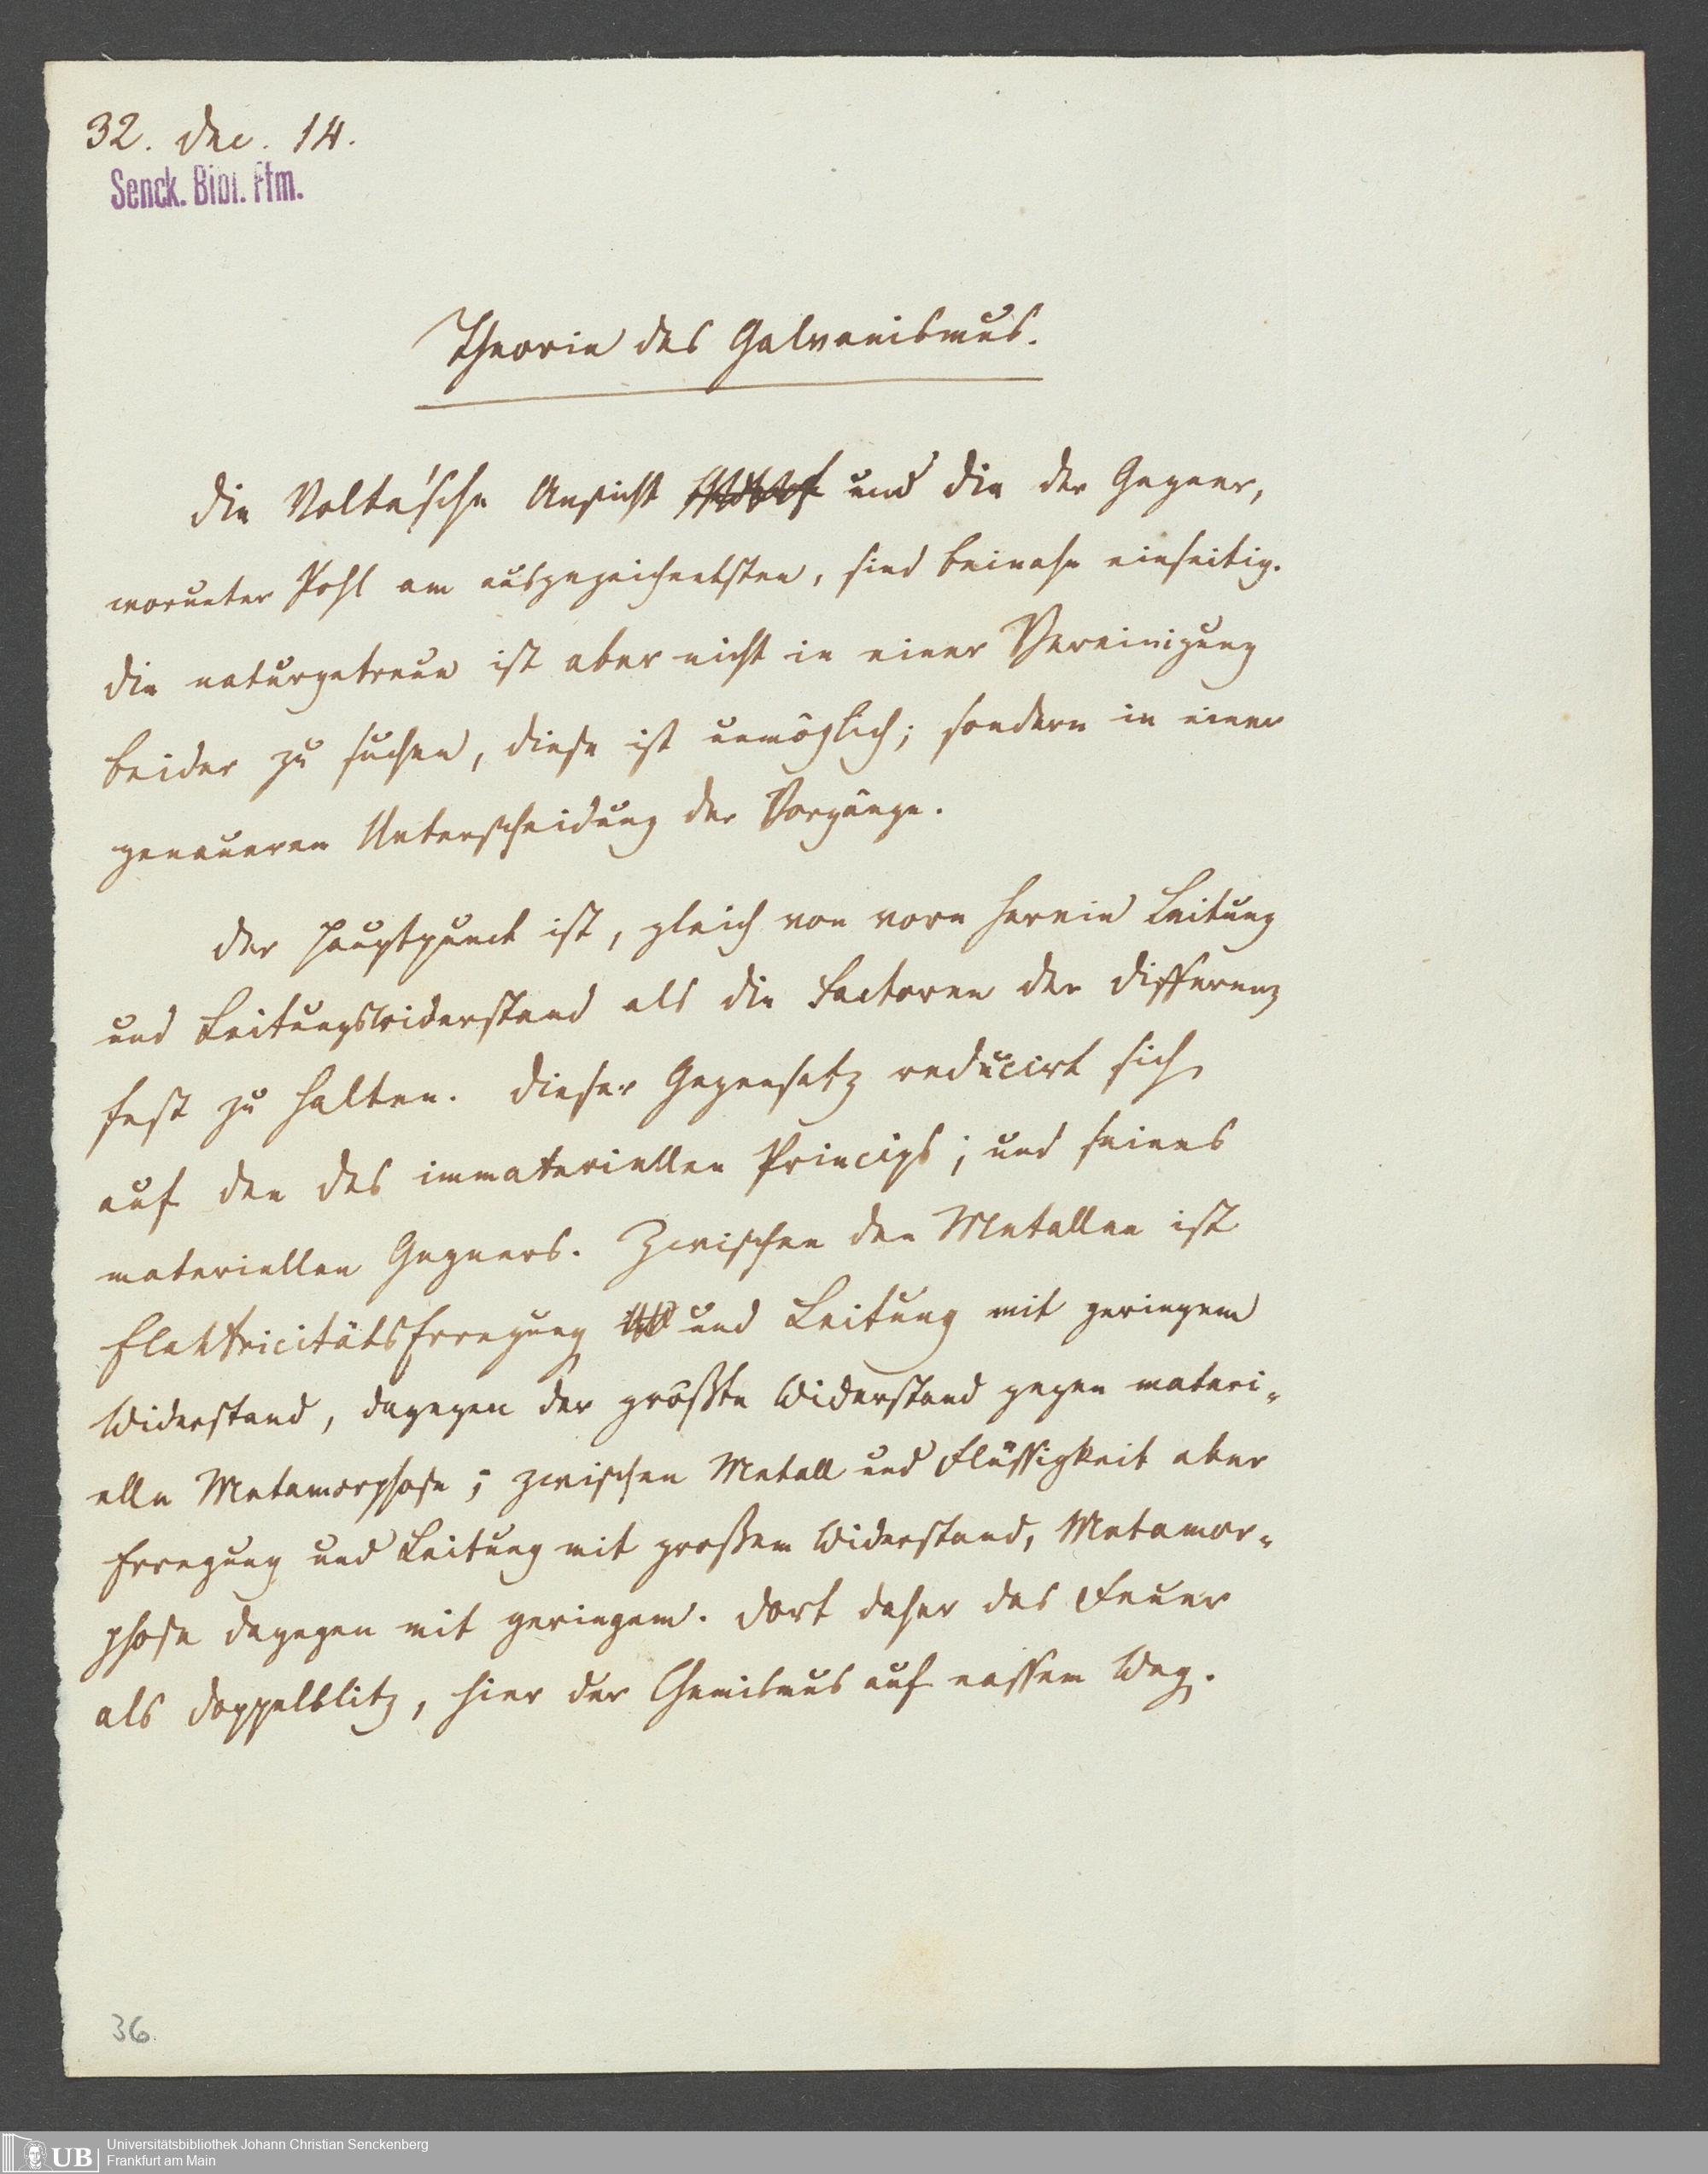 32. Dec. 14.
Senck. Bibl. Ffm.
Theorie des Galvanismus.
Die Volta'sche Ansicht und die der Gegner,
worunter Pohl am ausgezeichnetsten, sind beinahe einseitig.
Die naturgetreue ist aber nicht in einer Vereinigung
beider zu suchen, diese ist unmöglich; sondern in einer
genaueren Unterscheidung der Vorgänge.
Der Hauptpunct ist, gleich von vorn herein Leitung
und Leitungswiderstand als die Factoren der Differenz
fest zu halten. Dieser Gegensatz reducirt sich
auf den des immateriellen Princips; und seines
materiellen Gegners. Zwischen den Metallen ist
ElektricitätsErregung und Leitung mit geringem
Widerstand, dagegen der größte Widerstand gegen materi-
elle Metamorphose; zwischen Metall und Flüssigkeit aber
Erregung und Leitung mit großem Widerstand, Metamor-
phose dagegen mit geringem. Dort daher das Feuer
als Doppelblitz, hier der Chemismus auf nassem Weg.
36.
UB
Universitätsbibliothek Johann Christian Senckenberg
Frankfurt am Main